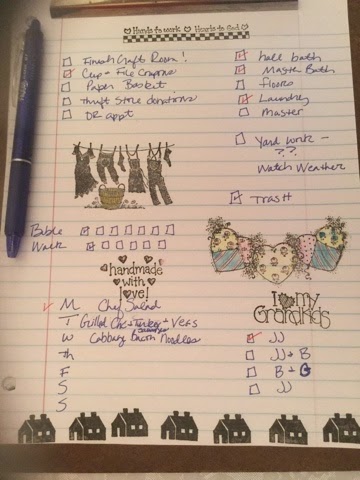 Hands to work Hearts to God
Finish Craft Room!
Cup - File Coupons
Paper Basket
Thrift Store donations
DR appt
hall bath
Master Bath
floors
Laundry
Master
Yard work -
??
Watch Weather
Trash
Bible
Walk
handmade
with
love!
I my
Grandkids
M Chef Salad
T Grilled Chc + Turkey + Vegs
W Cabbage Bacon Noodles
Th
F
S
S
JJ
JJ + B
B +
JJ